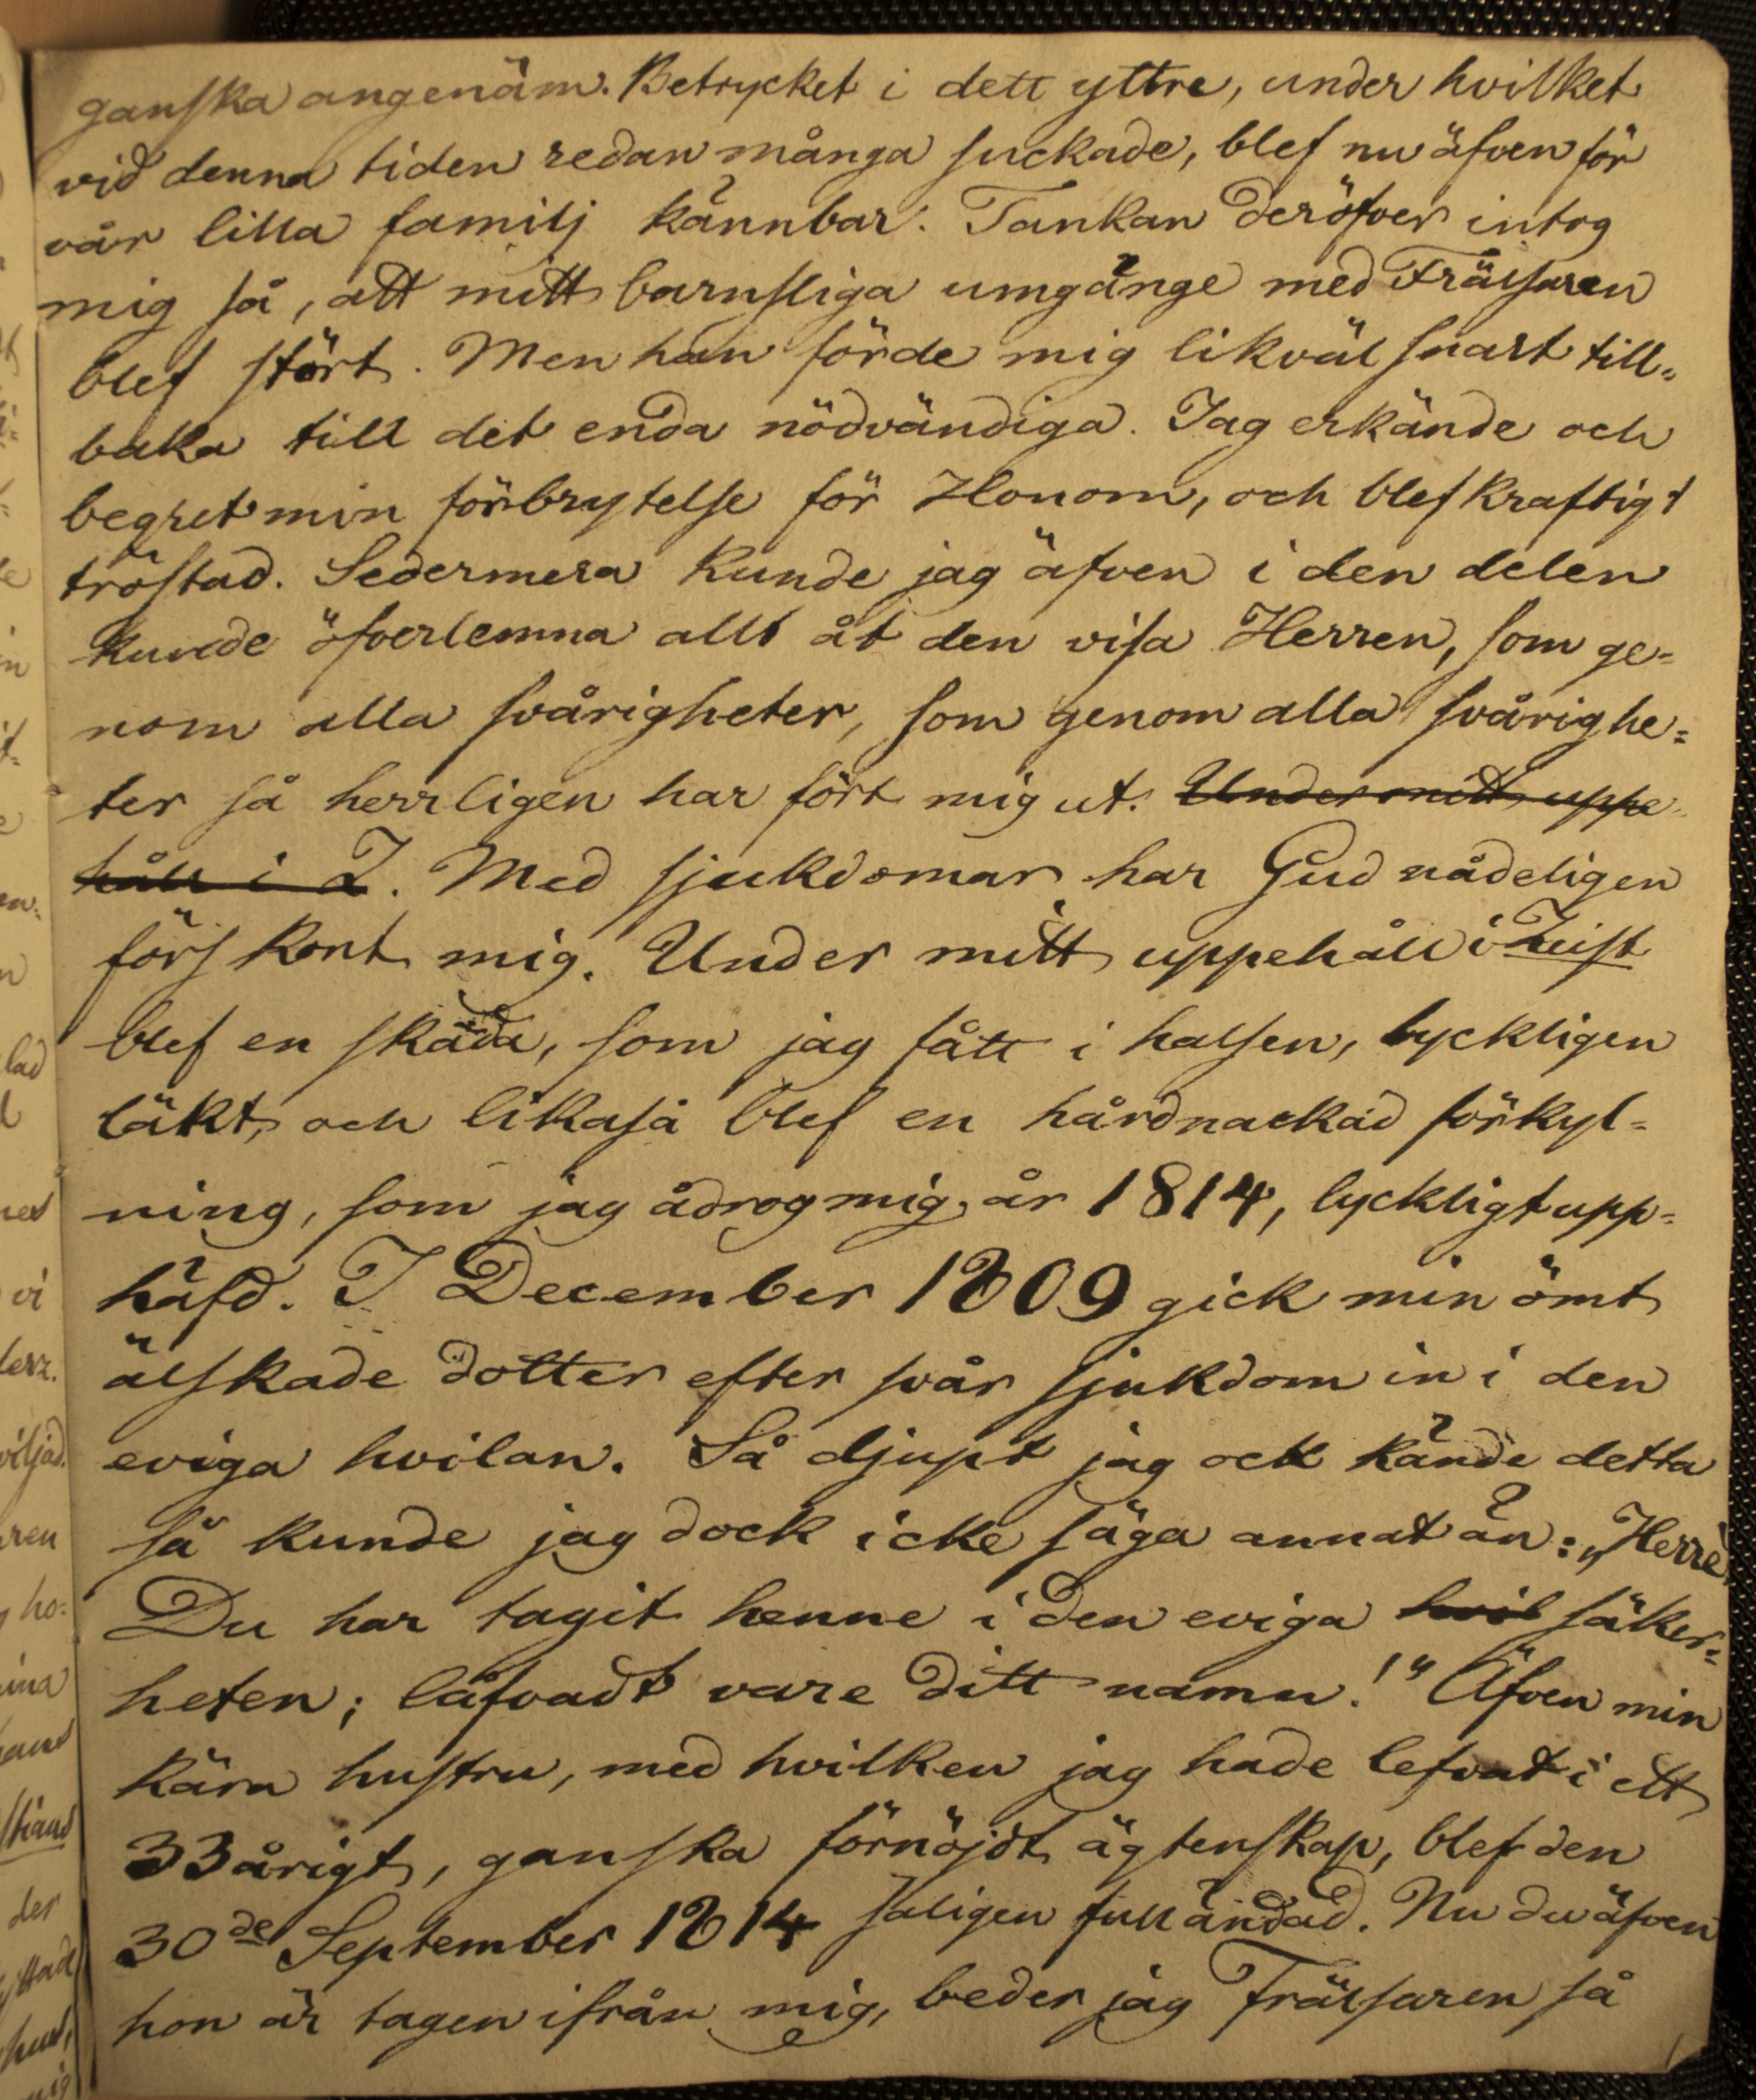 ganska angenäm. Betrycket i dett yttre, under hvilket
vid denna tiden redan många suckade, blef nu äfven för
vår lilla familj kännbar. Tankan deröfver intog
mig så, att mitt barnsliga umgänge med Frälsaren
blef stört. Men han förde mig likväl snart till-
baka till det enda nödvändiga. Jag erkände och
begret min förbrytelse för Honom, och blef kraftigt
tröstad. Sedermera kunde jag äfven i den delen
kunde öfverlemna allt åt den visa Herren, som ge-
nom alla svårigheter, som genom alla svårighe-
ter så herrligen har fört mig ut. Under mitt uppe-
håll i Z. Med sjukdomar har Gud nådeligen
förskont mig. Under mitt uppehåll i Zeist
blef en skada, som jag fått i halsen, lyckligen
läkt, och likaså blef en hårdnackad förkyl-
ning, som jag ådrog mig år 1814, lyckligt upp-
häfd. I December 1809 gick min ömt
älskade dotter efter svår sjukdom in i den
eviga hvilan. Så djupt jag ock kände detta
så kunde jag dock icke säga annat än: „Herre,
Du har tagit henne i den eviga hvil säker-
heten; låfvadt vare ditt namn!“ Äfven min
kära hustru, med hvilken jag hade lefvat i ett
33årigt, ganska förnöjdt ägtenskap, blef den
30de September 1814 saligen fulländad. Nu du äfven
hon är tagen ifrån mig, beder jag Frälsaren så